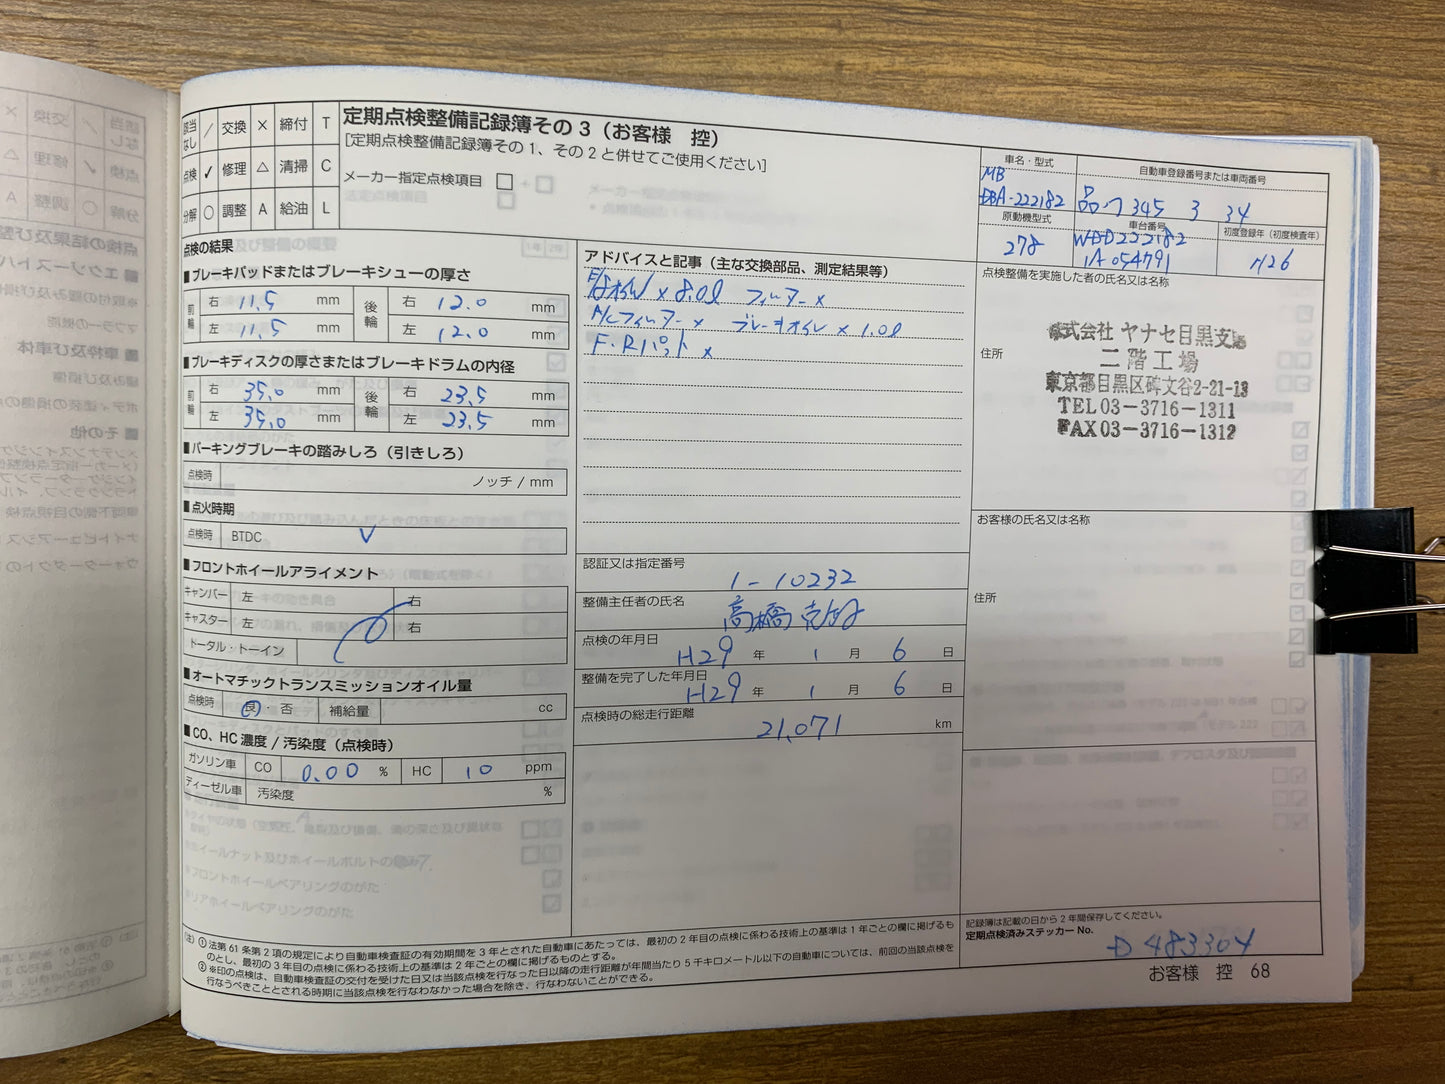 定期点検整備記録簿その3（お客様　控）
[定期点検整備記録簿その1、その2と併せてご使用ください]
該当なし ／ 交換 × 締付 T
点検 ✓ 修理 △ 清掃 C
分解 ○ 調整 A 給油 L
メーカー指定点検項目 □
車名・型式
MB
DBA-222182
自動車登録番号または車両番号
品川 345 ろ 34
原動機型式
278
車台番号
WDD222182
1A054791
初度登録年（初度検査年）
H26
点検の結果
■ブレーキパッドまたはブレーキシューの厚さ
前輪 右 11.5 mm 後輪 右 12.0 mm
左 11.5 mm 左 12.0 mm
■ブレーキディスクの厚さまたはブレーキドラムの内径
前輪 右 35.0 mm 後輪 右 23.5 mm
左 35.0 mm 左 23.5 mm
■パーキングブレーキの踏みしろ（引きしろ）
点検時 ノッチ / mm
■点火時期
点検時 BTDC ✓
■フロントホイールアライメント
キャンバー 左 右
キャスター 左 右
トータル・トーイン
■オートマチックトランスミッションオイル量
点検時 良・否 補給量 cc
■CO、HC濃度 / 汚染度（点検時）
ガソリン車 CO 0.00 % HC 10 ppm
ディーゼル車 汚染度 %
アドバイスと記事（主な交換部品、測定結果等）
E/gオイル × 8.0ℓ フィルター ×
A/Cフィルター × ブレーキオイル × 1.0ℓ
F・Rパット ×
認証又は指定番号
1-10232
整備主任者の氏名
高橋
点検の年月日
H29 年 1 月 6 日
整備を完了した年月日
H29 年 1 月 6 日
点検時の総走行距離
21,071 km
点検整備を実施した者の氏名又は名称
株式会社 ヤナセ目黒支店
二階工場
住所
東京都目黒区碑文谷2-21-13
TEL 03-3716-1311
FAX 03-3716-1312
お客様の氏名又は名称
住所
記録簿は記載の日から2年間保存してください。
定期点検済みステッカー No.
D 483304
（注）①法第61条第2項の規定により自動車検査証の有効期間を3年とされた自動車にあたっては、最初の2年目の点検に係わる技術上の基準は1年ごとの欄に掲げるも
のとし、最初の3年目の点検に係わる技術上の基準は2年ごとの欄に掲げるものとする。
②※印の点検は、自動車検査証の交付を受けた日又は当該点検を行なった日以降の走行距離が年間当たり5千キロメートル以下の自動車については、前回の当該点検を
行なうべきこととされる時期に当該点検を行なわなかった場合を除き、行なわないことができる。
お客様　控　68